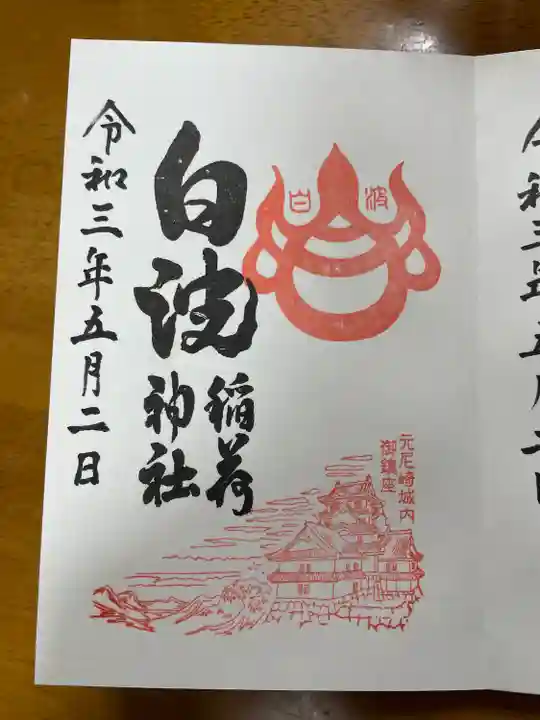 白波
稲荷
神社
白
波
元尼崎城内
御鎮座
令和三年五月二日
令和三年五月二日